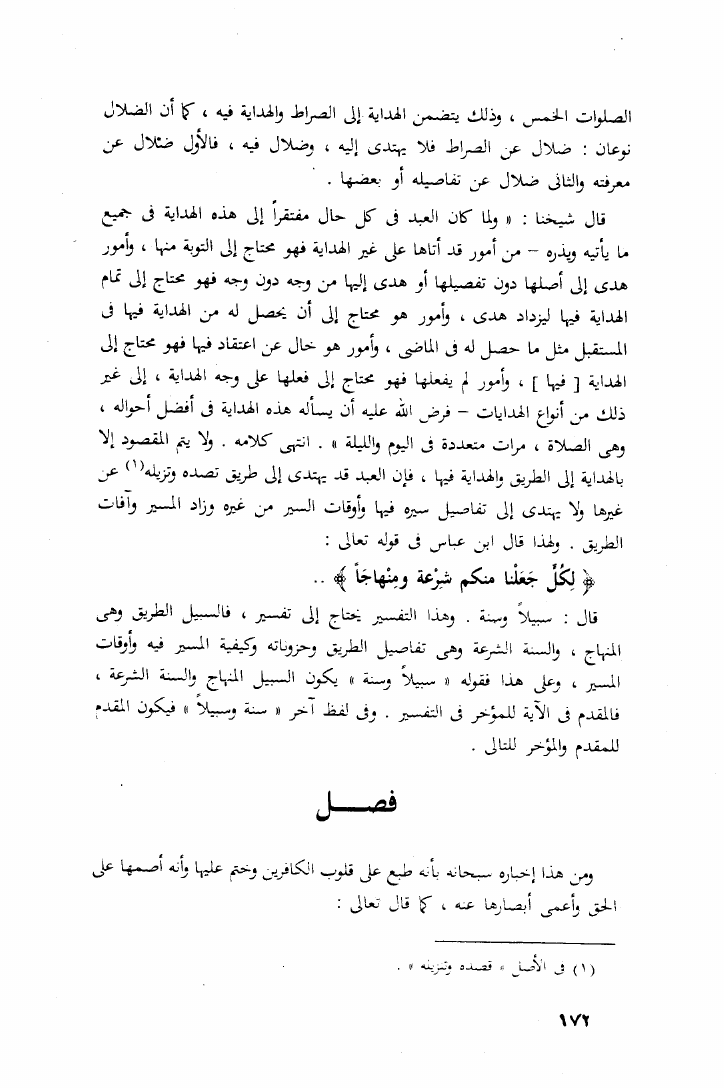 الصلوات الخمس ، وذلك يتضمن الهداية إلى الصراط والهداية فيه ، كما أن الضلال
نوعان : ضلال عن الصراط فلا يهتدى إليه ، وضلال فيه ، فالأول ضلال عن
معرفته والثانى ضلال عن تفاصيله أو بعضها .
قال شيخنا : « ولما كان العبد فى كل حال مفتقراً إلى هذه الهداية فى جميع
ما يأتيه ويذره – من أمور قد أتاها على غير الهداية فهو محتاج إلى التوبة منها ، وأمور
هدى إلى أصلها دون تفصيلها أو هدى إليها من وجه دون وجه فهو محتاج إلى تمام
الهداية فيها ليزداد هدى ، وأمور هو محتاج إلى أن يحصل له من الهداية فيها فى
المستقبل مثل ما حصل له فى الماضى ، وأمور هو خال عن اعتقاد فيها فهو محتاج إلى
الهداية [ فيها ] ، وأمور لم يفعلها فهو محتاج إلى فعلها على وجه الهداية ، إلى غير
ذلك من أنواع الهدايات – فرض الله عليه أن يسأله هذه الهداية فى أفضل أحواله ،
وهى الصلاة ، مرات متعددة فى اليوم والليلة » . انتهى كلامه . ولا يتم المقصود إلا
بالهداية إلى الطريق والهداية فيها ، فإن العبد قد يهتدى إلى طريق تصده وتزيله(١) عن
غيرها ولا يهتدى إلى تفاصيل سيره فيها وأوقات السير من غيره وزاد المسير وآفات
الطريق . ولهذا قال ابن عباس فى قوله تعالى :
﴿ لِكُلٍّ جَعَلْنا منكم شرْعة ومِنْهاجَاً ﴾ ..
قال : سبيلاً وسنة . وهذا التفسير يحتاج إلى تفسير ، فالسبيل الطريق وهى
المنهاج ، والسنة الشرعة وهى تفاصيل الطريق وحزوناته وكيفية المسير فيه وأوقات
المسير ، وعلى هذا فقوله « سبيلاً وسنة » يكون السبيل المنهاج والسنة الشرعة ،
فالمقدم فى الآية للمؤخر فى التفسير . وفى لفظ آخر « سنة وسبيلاً » فيكون المقدم
للمقدم والمؤخر للتالى .
فصــل
ومن هذا إخباره سبحانه بأنه طبع على قلوب الكافرين وختم عليها وأنه أصمها على
الحق وأعمى أبصارها عنه ، كما قال تعالى :
(١) فى الأصل « قصده وتنزيله » .
١٧٢